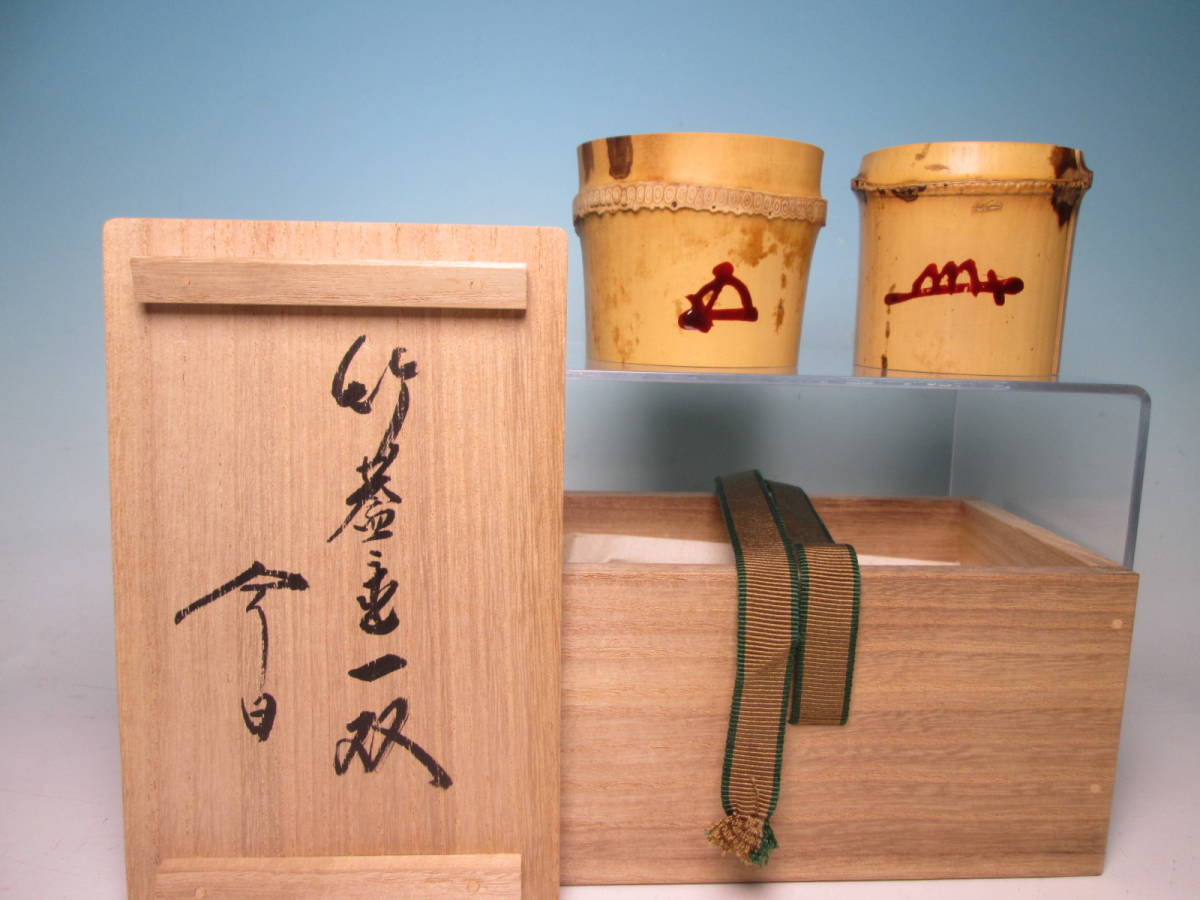 竹蓋置一双
今日